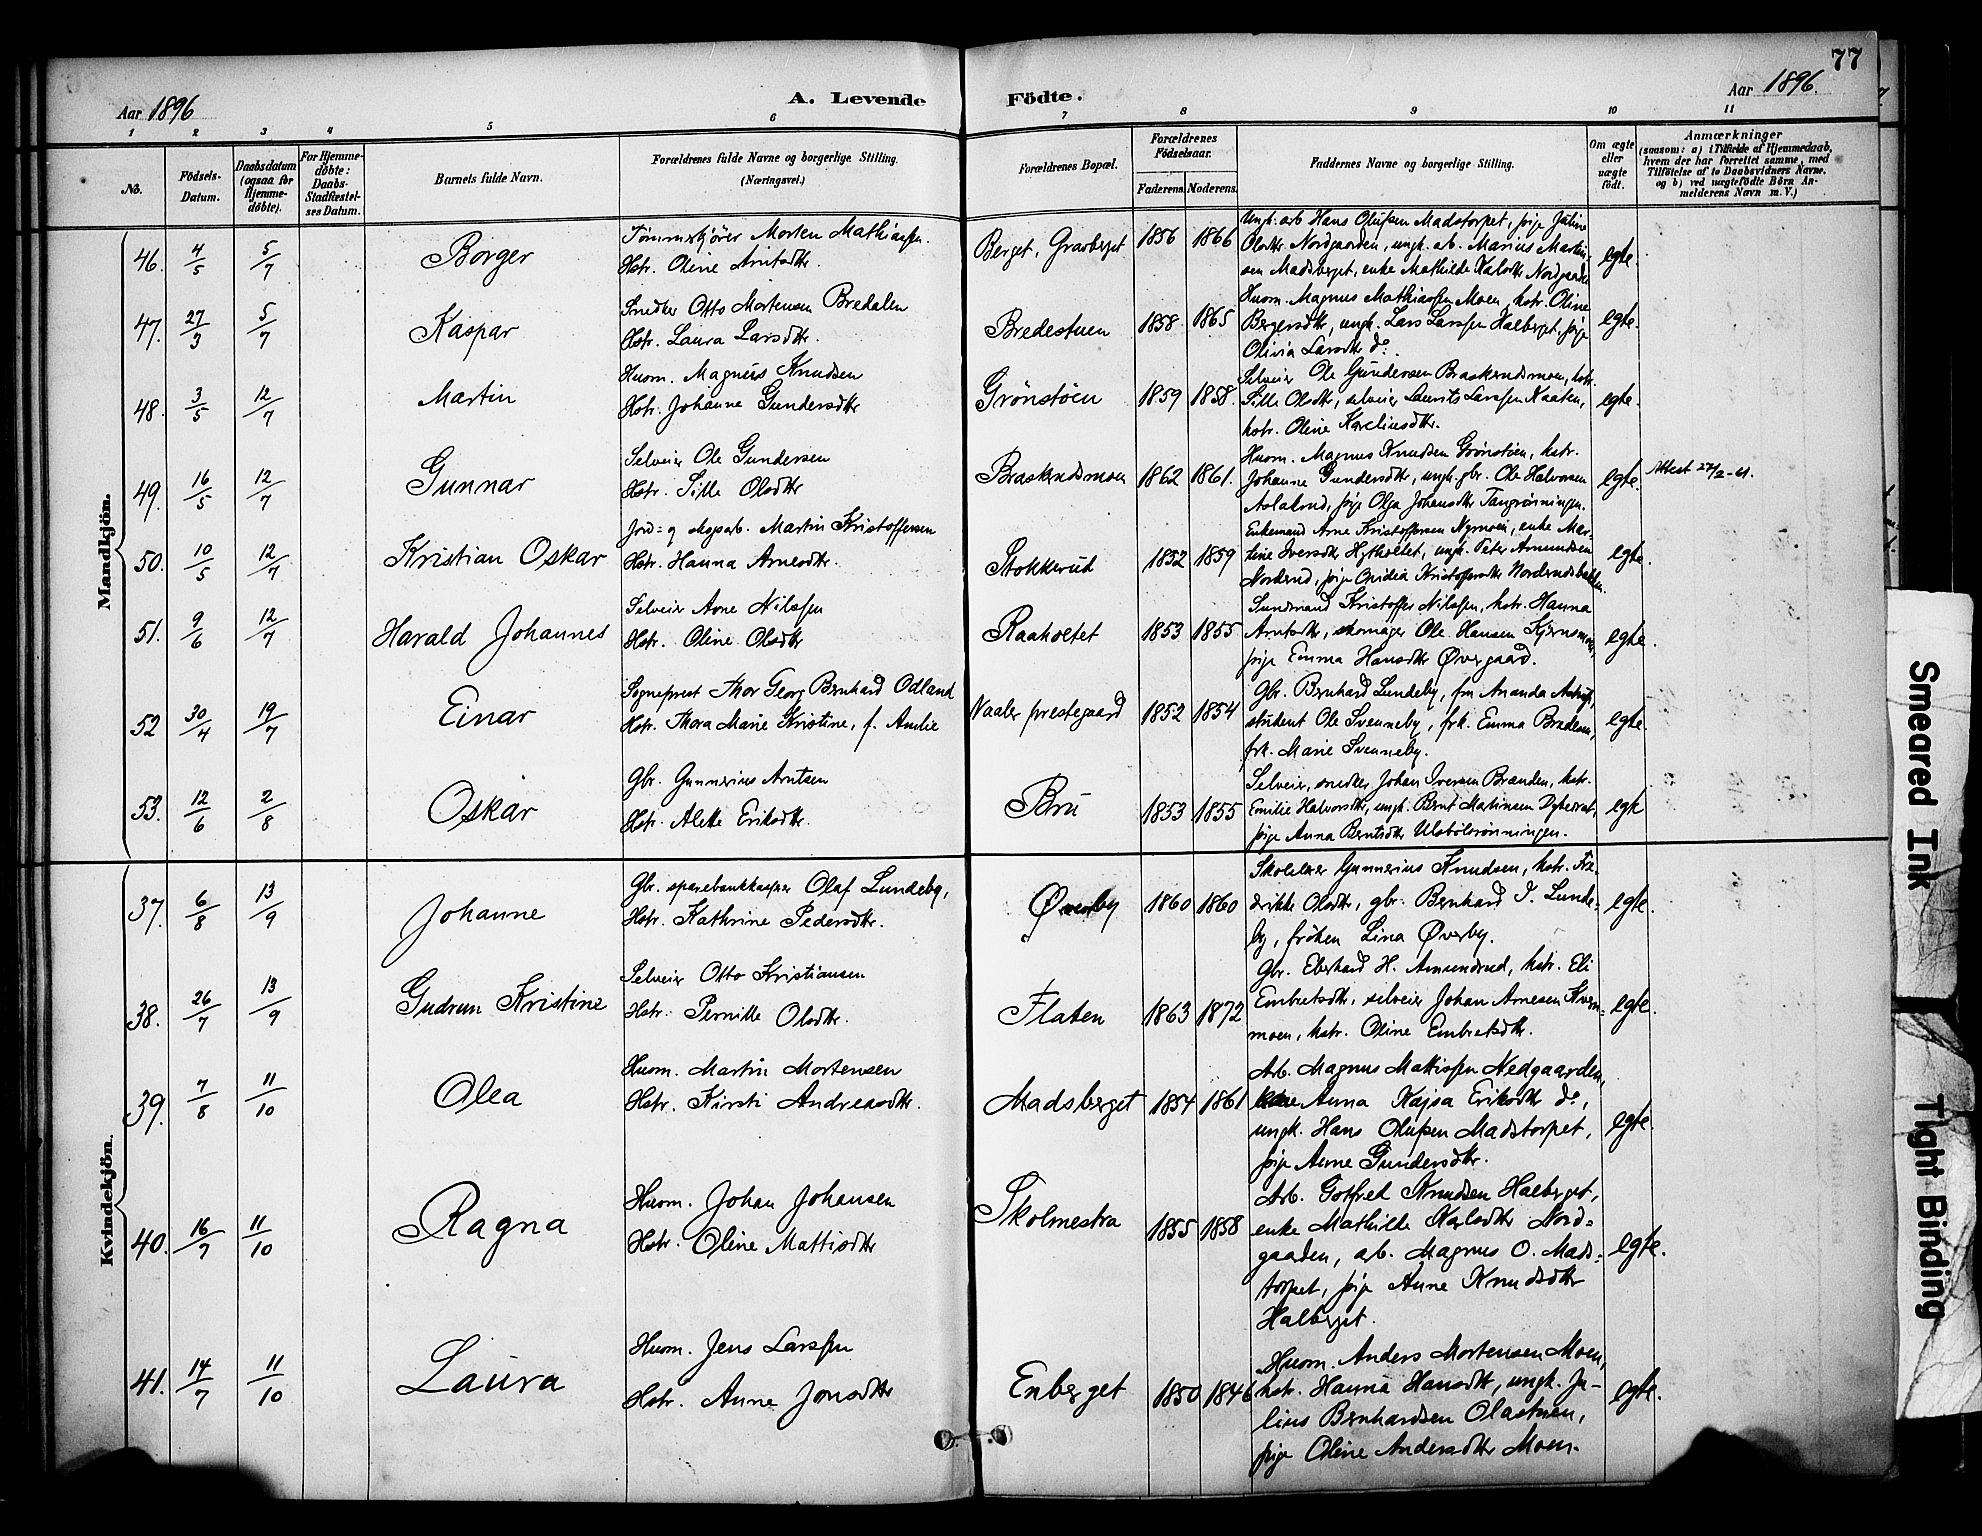 77
Aar 1896
A. Levende
Födte.
Aar 1896.
1 2 3 4 5 6 7 8 9 10 11
No.
Födsels-
Datum.
Daabsdatum
(ogsaa for
Hjemme-
döbte).
For Hjemme-
döbte:
Daabs-
Stadfæstel-
ses Datum.
Barnets fulde Navn.
Forældrenes fulde Navne og borgerlige Stilling.
(Næringsvei.)
Forældrenes Bopæl.
Forældrenes
Födselsaar.
Faderens. Moderens.
Faddernes Navne og borgerlige Stilling.
Om ægte
eller
uægte
födt.
Anmærkninger
(saasom: a) i Tilfælde af Hjemmedaab,
hvem der har forrettet samme, med
Tilföielse af to Daabsvidners Navne,
og b) ved uægtefödte Börn An-
melderens Navn m. V.)
Mandkjön.
46. 4/5 5/7 Borger
Tømmerkjører Morten Mathiassen.
Hstr. Oline Arntsdtr.
Berget, Graaberget 1856 1866
Ungk. arb. Hans Olufsen Madstorpet, pige Juline
Olsdtr. Nordgaarden, ungk. arb. Marius Martin-
sen Madsberget, enke Mathilde Karlsdtr Nordgaarden
egte.
47. 27/3 5/7 Kaspar
Snedker Otto Mortensen Bredalen
Hstr. Laura Larsdtr.
Bredestuen 1858 1865
Husm. Magnus Mathiassen Moen, hstr. Oline
Bergersdtr, ungk. Lars Larssen Halberget, pige
Olivia Larsdtr do.
egte.
48. 3/5 12/7 Martin
Husm. Magnus Knudsen
Hstr. Johanne Gundersdtr
Grønstøen 1859 1858.
Selveier Ole Gundersen Braskerudsmoen, hstr.
Sille Olsdtr, selveier Laurits Larssen Kaaten,
hstr. Oline Kareliusdtr.
egte.
49. 16/5 12/7 Gunnar
Selveier Ole Gundersen
Hstr. Sille Olsdtr
Braskerudsmoen 1862 1861.
Husm. Magnus Knudsen Grønstøen, hstr.
Johanne Gundersdtr, ungk. gbr. Ole Halvorsen
Aslakrud, pige Olga Johansdtr Tangrønningen.
egte.
Attest 27/2-41.
50. 10/5 12/7 Kristian Oskar
Jord= og skogarb. Martin Kristoffersen
Hstr. Hanna Arnesdtr.
Stokkerud 1852 1859
Enkemand Arne Kristoffersen Nymoen, enke Mar-
tine Iversdtr Hytholtet, ungk. Peter Amundsen
Norderud, pige Ovidia Kristoffersdtr Norderudsbakken.
egte.
51. 9/6 12/7 Harald Johannes
Selveier Arne Nilssen
Hstr. Oline Olsdtr
Raaholtet 1853 1855
Sundmand Kristoffer Nilssen, hstr. Hanna
Arntsdtr, skomager Ole Hansen Kjernsmoen,
pige Emma Hansdtr Øvergaard.
egte.
52 30/4 19/7 Einar
Sogneprest Thor Georg Bernhard Odland
Hstr. Thora Marie Kristine, f. Amlie
Vaaler prestegaard 1852 1854
Gbr. Bernhard Lundeby, fru Ananda
student Ole Svenneby, frk. Emma Bredesen,
frk. Marie Svenneby.
egte.
53. 12/6 2/8 Oskar
Gbr. Gunnerius Arntsen
Hstr. Alette Eriksdtr.
Bru 1853 1855
Selveier, snedker Johan Iversen Brænden, hstr.
Emilie Halvorsdtr, ungk. Bernt Martinsen
pige Anna Berntsdtr Ulsbølrønningen.
egte
Kvindekjön.
37. 6/8 13/9 Johanne
Gbr. sparebankkasser Olaf Lundeby,
Hstr. Kathrine Pedersdtr.
Øverby 1860 1860
Skolelærer Gunnerius Knudsen, hstr. Fre-
drikke Olsdtr, gbr. Bernhard J. Lunde-
by, frøken Lina Øverby.
egte.
38. 26/7 13/9 Gudrun Kristine
Selveier Otto Kristiansen
Hstr. Pernille Olsdtr.
Flaten 1863 1872
Gbr. Eberhard H. Amundrud, hstr. Eli
Embretsdtr, selveier Johan Arnesen Kvern-
moen, hstr. Oline Embretsdtr.
egte.
39. 7/8 11/10 Olea
Husm. Martin Mortensen
Hstr. Kirsti Andreasdtr.
Madsberget 1854 1861
Arb. Magnus Mattissen Nedgaarden,
Anna Kajsa Eriksdtr do,
ungk. Hans Olufsen Madstorpet,
pige Anne Gundersdtr.
egte.
40. 16/7 11/10 Ragna
Husm. Johan Johansen
Hstr. Oline Mattisdtr
Skolmestra 1855 1858
Arb. Gotfred Knudsen Halberget,
enke Mathilde Karlsdtr Nord-
gaarden, arb. Magnus O. Mads-
torpet, pige Anne Knudsdtr
Halberget.
egte.
41. 14/7 11/10 Laura
Husm. Jens Larssen
Hstr. Anne Jonsdtr
Enberget 1850 1846
Husm. Anders Mortensen Moen,
hstr. Hanna Hansdtr, ungk. Ju-
lius Bernhardsen Olastuen,
pige Oline Andersdtr Moen.
egte.
Smeared Ink
Tight Binding